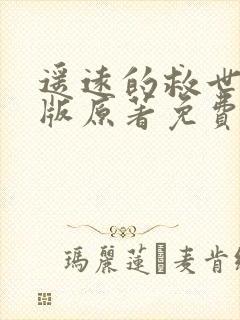 遥远的救世
版原著免費
瑪麗蓮 麦肯